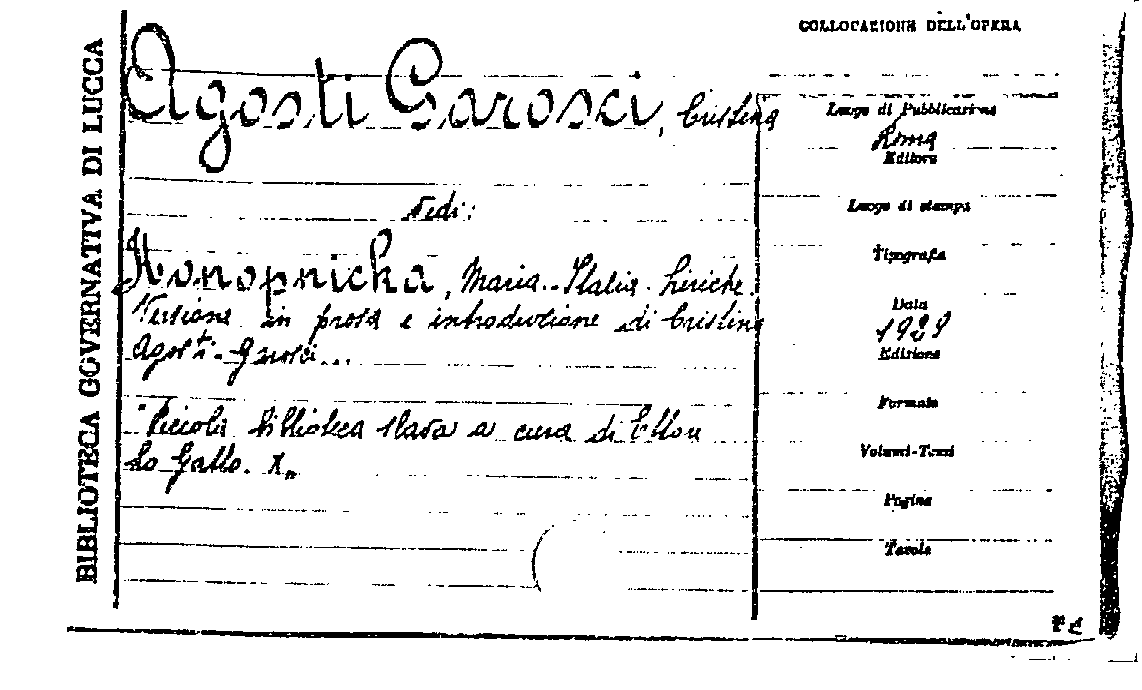 BIBLIOTECA GOVERNATIVA DI LUCCA
COLLOCAZIONE DELL'OPERA
Agosti Garosci, Cristina
Vedi:
Konopnicka, Maria.-Italia-Liriche.
Versione in prosa e introduzione di Cristina
Agosti-Garosci...
"Piccola biblioteca slava a cura di Ettore
Lo Gatto. X"
Luogo di Pubblicazione
Roma
Editore
Luogo di stampa
Tipografia
Data
1929
Edizione
Formato
Volumi-Tomi
Pagine
Tavole